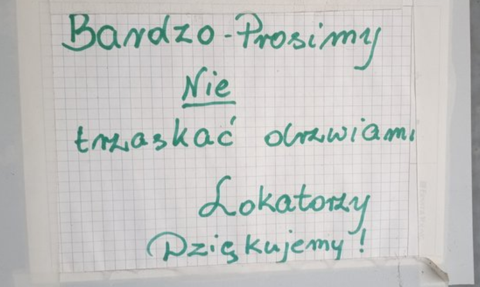 Bardzo-Prosimy
Nie
trzaskać drzwiami
Lokatorzy
Dziękujemy!